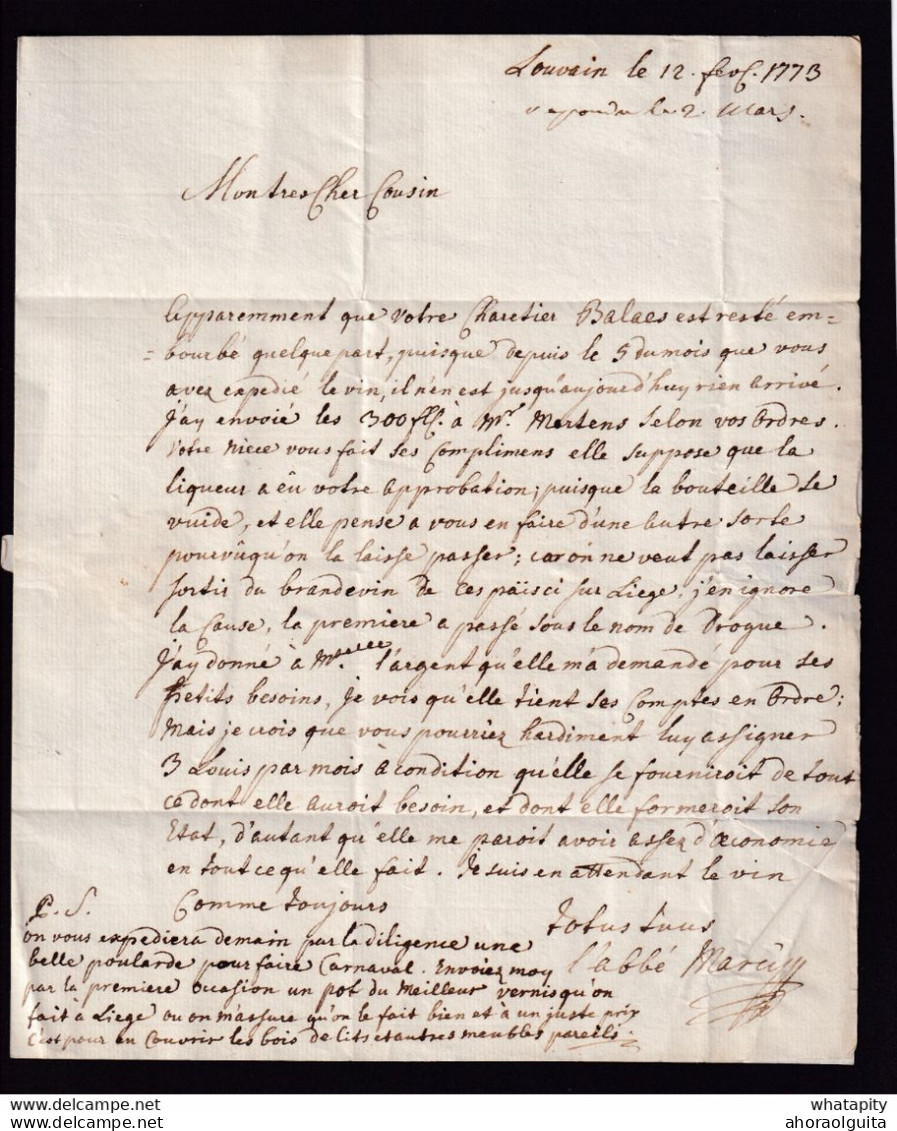 Louvain le 12. fevf. 1773
repondu le 2. Mars.
Mon tres Cher Cousin
Apparemment que votre Charetier Balaes est resté em=
=bourbé quelque part, puisque depuis le 5 du mois que vous
avez expedié le vin, il n'en est jusqu'aujourd'huy rien arrivé.
J'ay envoié les 300 fl. à Mr. Mertens selon vos Ordres.
Votre Niece vous fait ses Complimens elle suppose que la
liqueur a êu votre approbation; puisque la bouteille se
vuide, et elle pense a vous en faire d'une autre sorte
pourvûqu'on la laisse passer; car on ne veut pas laisser
sortir du brandevin de ces païs ci sur Liege; j'en ignore
la Cause, la premiere a passé sous le nom de Drogue.
J'ay donné à l'argent qu'elle m'a demandé pour ses
petits besoins, Je vois qu'elle tient ses Comptes en Ordre;
Mais je crois que vous pourriez hardiment luy assigner
3 Louis par mois à condition qu'elle se fourniroit de tout
ce dont elle auroit besoin, et dont elle formeroit son
Etat, d'autant qu'elle me paroit avoir assez d'œconomie
en tout ce qu'elle fait. Je suis en attendant le vin
Comme toujours
totus tuus
l'abbé Marcÿ
P. S.
on vous expediera demain par la diligence une
belle poularde pour faire Carnaval. Envoiez moy
par la premiere ocasion un pot du Meilleur vernis qu'on
fait à Liege ou on m'assure qu'on le fait bien et à un juste prix
c'est pour en Couvrir les bois de lits et autres meubles pareils.
whatapity
ahoraolguita